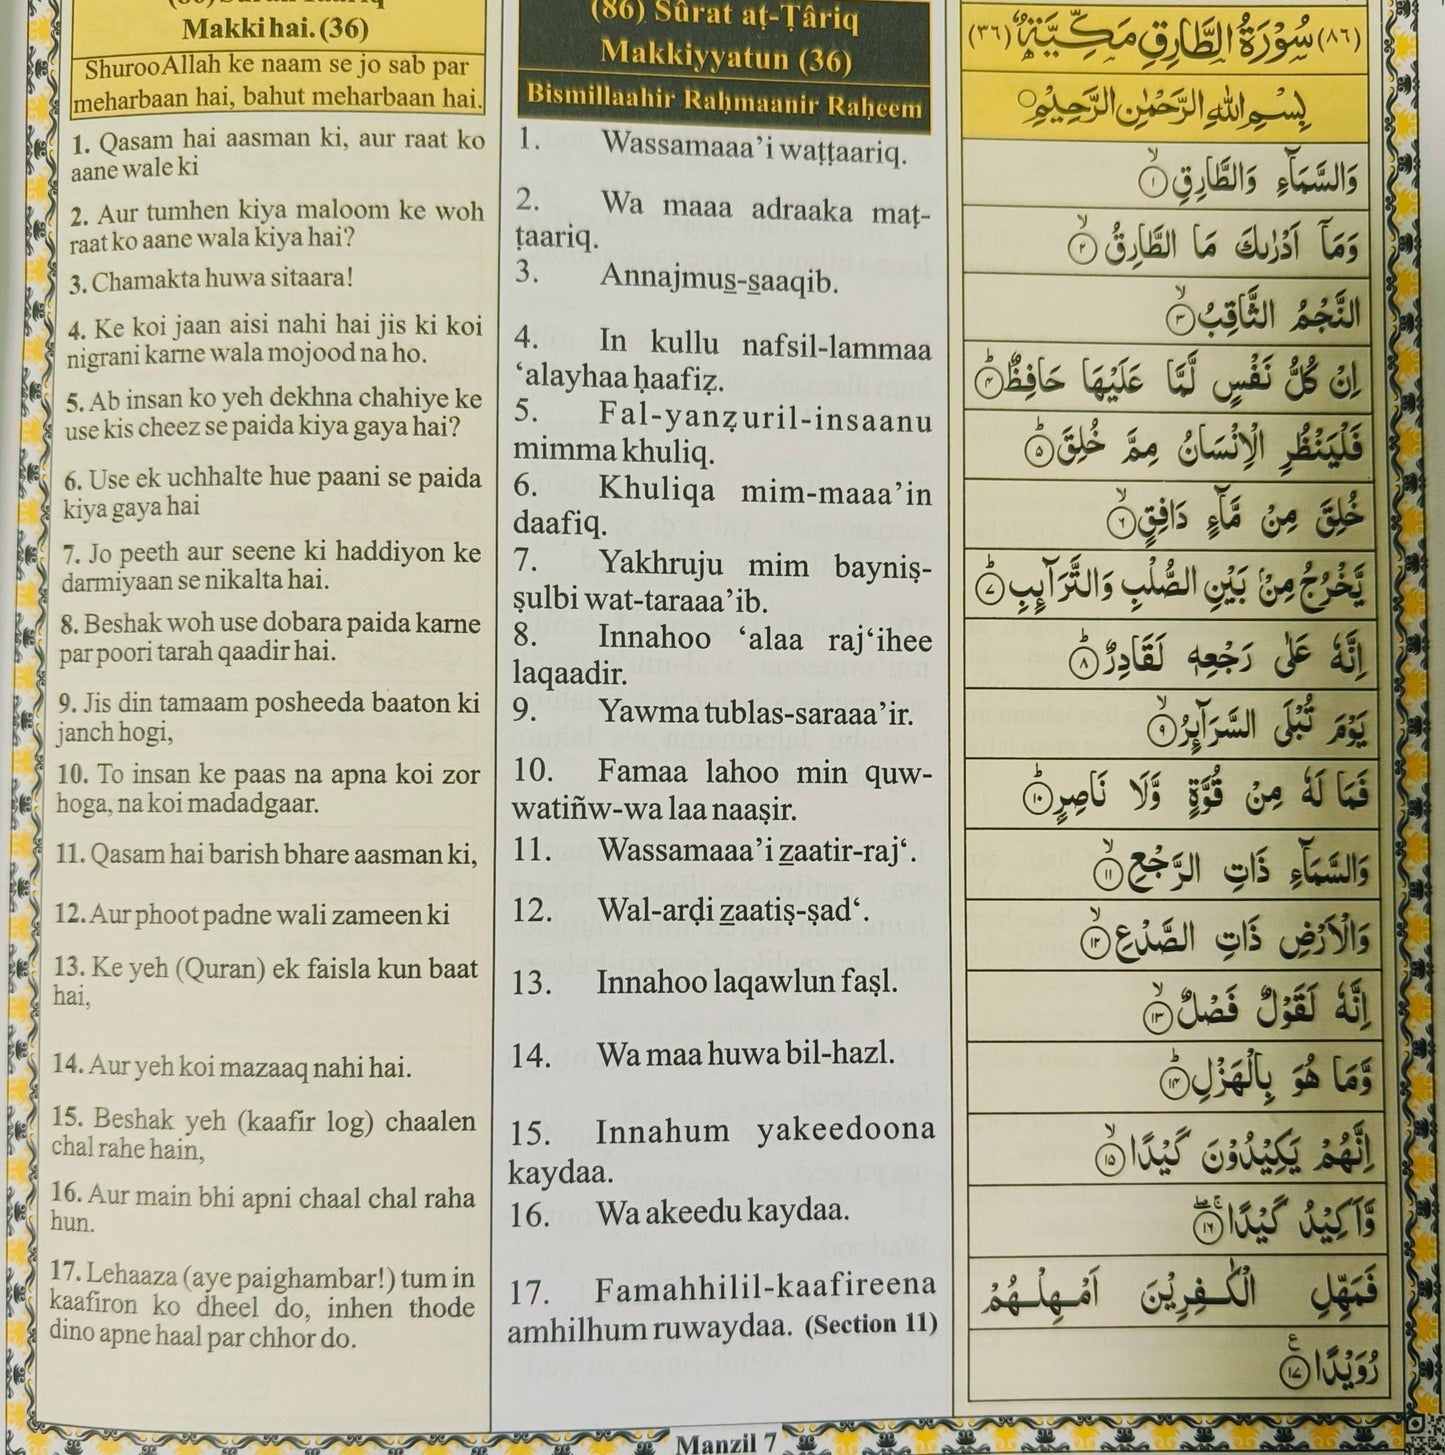 Makki hai. (36)
Shuroo Allah ke naam se jo sab par
meharbaan hai, bahut meharbaan hai.
1. Qasam hai aasman ki, aur raat ko
aane wale ki
2. Aur tumhen kiya maloom ke woh
raat ko aane wala kiya hai?
3. Chamakta huwa sitaara!
4. Ke koi jaan aisi nahi hai jis ki koi
nigrani karne wala mojood na ho.
5. Ab insan ko yeh dekhna chahiye ke
use kis cheez se paida kiya gaya hai?
6. Use ek uchhalte hue paani se paida
kiya gaya hai
7. Jo peeth aur seene ki haddiyon ke
darmiyaan se nikalta hai.
8. Beshak woh use dobara paida karne
par poori tarah qaadir hai.
9. Jis din tamaam posheeda baaton ki
janch hogi,
10. To insan ke paas na apna koi zor
hoga, na koi madadgaar.
11. Qasam hai barish bhare aasman ki,
12. Aur phoot padne wali zameen ki
13. Ke yeh (Quran) ek faisla kun baat
hai,
14. Aur yeh koi mazaaq nahi hai.
15. Beshak yeh (kaafir log) chaalen
chal rahe hain,
16. Aur main bhi apni chaal chal raha
hun.
17. Lehaaza (aye paighambar!) tum in
kaafiron ko dheel do, inhen thode
dino apne haal par chhor do.
(86) Sûrat aṭ-Ṭâriq
Makkiyyatun (36)
Bismillaahir Raḥmaanir Raḥeem
1. Wassamaaa’i waṭṭaariq.
2. Wa maaa adraaka maṭ-
ṭaariq.
3. Annajmus̲-s̲aaqib.
4. In kullu nafsil-lammaa
‘alayhaa ḥaafiẓ.
5. Fal-yanẓuril-insaanu
mimma khuliq.
6. Khuliqa mim-maaa’in
daafiq.
7. Yakhruju mim bayniṣ-
ṣulbi wat-taraaa’ib.
8. Innahoo ‘alaa raj‘ihee
laqaadir.
9. Yawma tublas-saraaa’ir.
10. Famaa lahoo min quw-
watiñw-wa laa naaṣir.
11. Wassamaaa’i z̲aatir-raj‘.
12. Wal-arḍi z̲aatiṣ-ṣad‘.
13. Innahoo laqawlun faṣl.
14. Wa maa huwa bil-hazl.
15. Innahum yakeedoona
kaydaa.
16. Wa akeedu kaydaa.
17. Famahhilil-kaafireena
amhilhum ruwaydaa. (Section 11)
(٨٦) سُوْرَةُ الطَّارِقِ مَكِّيَّةٌ (٣٦)
بِسْمِ اللهِ الرَّحْمٰنِ الرَّحِيْمِ
وَالسَّمَآءِ وَالطَّارِقِ ۙ ۱
وَمَآ اَدْرٰىكَ مَا الطَّارِقُ ۙ ۲
النَّجْمُ الثَّاقِبُ ۙ ۳
اِنْ كُلُّ نَفْسٍ لَّمَّا عَلَيْهَا حَافِظٌ ؕ ۴
فَلْيَنْظُرِ الْاِنْسَانُ مِمَّ خُلِقَ ؕ ۵
خُلِقَ مِنْ مَّآءٍ دَافِقٍ ۙ ۶
يَّخْرُجُ مِنْۢ بَيْنِ الصُّلْبِ وَالتَّرَآئِبِ ؕ ۷
اِنَّهٗ عَلٰى رَجْعِهٖ لَقَادِرٌ ؕ ۸
يَوْمَ تُبْلَى السَّرَآئِرُ ۙ ۹
فَمَا لَهٗ مِنْ قُوَّةٍ وَّلَا نَاصِرٍ ؕ ۱۰
وَالسَّمَآءِ ذَاتِ الرَّجْعِ ۙ ۱۱
وَالْاَرْضِ ذَاتِ الصَّدْعِ ۙ ۱۲
اِنَّهٗ لَقَوْلٌ فَصْلٌ ۙ ۱۳
وَّمَا هُوَ بِالْهَزْلِ ؕ ۱۴
اِنَّهُمْ يَكِيْدُوْنَ كَيْدًا ۙ ۱۵
وَّاَكِيْدُ كَيْدًا ۚۖ ۱۶
فَمَهِّلِ الْكٰفِرِيْنَ اَمْهِلْهُمْ
رُوَيْدًا ۱۷ ع
Manzil 7